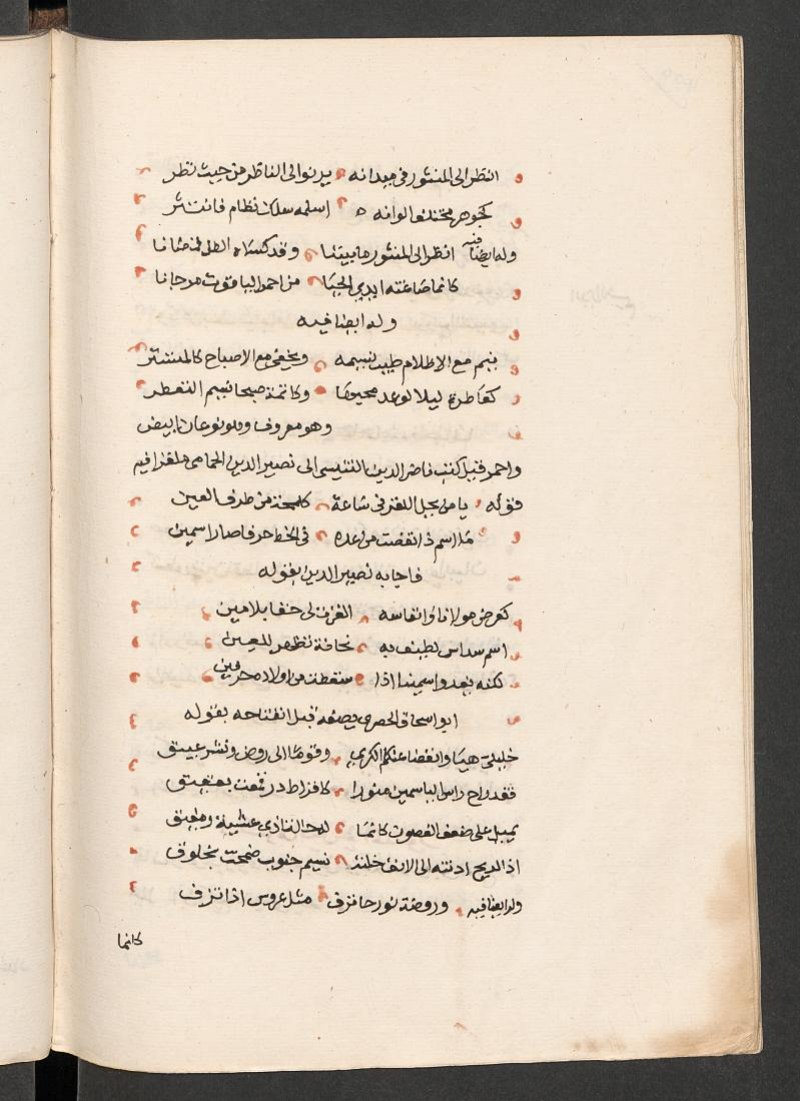 انظر الى المنثور في ميدانه يرنو الى الناظر من حيث نظر
كجوهر مختلف الوانه اسلمه سلك نظام فانتثر
وله ايضا فيه انظر الى المنثور ما بيننا وقد كساه الطل قمصانا
كانما صاغته ايدي الحيا من احمر الياقوت مرجانا
وله ايضا فيه
ينم مع الاظلام طيب نسيمه ويخفى مع الاصباح كالمتستر
كعاطرة ليلا لوعد محبوبها وكاتمة صبحا نسيم التعطر
وهو معروف وهو نوعان ابيض
واحمر قيل كتب ناصر الدين التنيسى الى نصير الدين الحمامى ملغزا فيه
قوله يا من يحل اللغز في ساعة كلمحة من طرف العين
ما اسم اذا نقصت من عده في الخط حرفا صار اسمين
فاجابه نصير الدين بقوله
كعرض مولانا وانفاسه الغزت لى حقا بلا مين
اسم سداسى لطيف به نحافة تظهر للعين
لكنه يغدو اسمينا اذا سقطت من اولاه حرفين
ابو اسحاق الحصرى يصفه قبل انفتاحه بقوله
خليلى هبا وانفضا عنكما الكرى وقوما الى روض ونشر عبيق
فقد راح راس الياسمين منورا كاقراط در قمعت بعقيق
يميل على ضعف الغصون كانما له حالتا ذى غشية ومفيق
اذا الريح ادنته الى الانف خلته نسيم جنوب ضمخت بخلوق
وله ايضا فيه وروضة نورها يزف مثل عروس اذا تزف
كانما